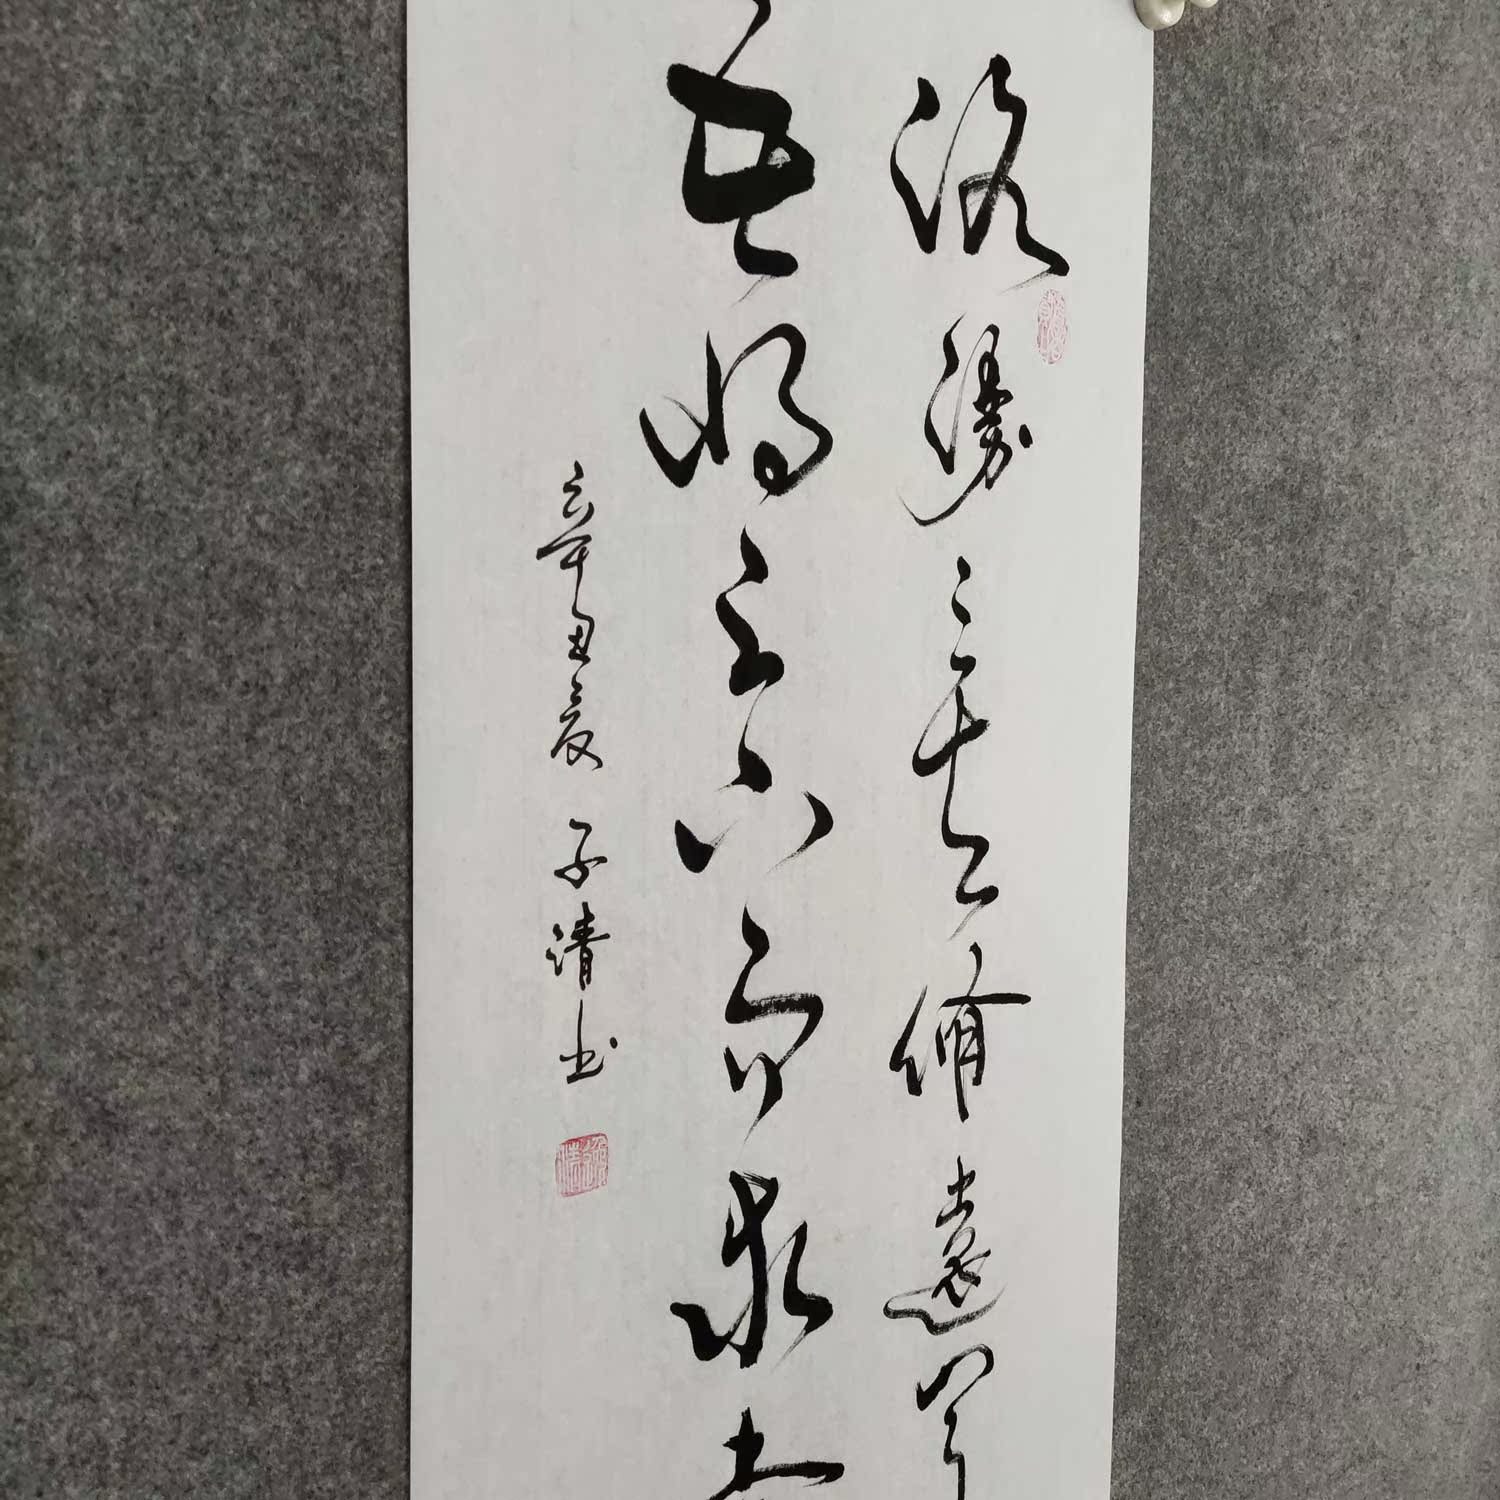 路漫漫其修遠兮
吾将上下而求索
辛丑夏 子清书